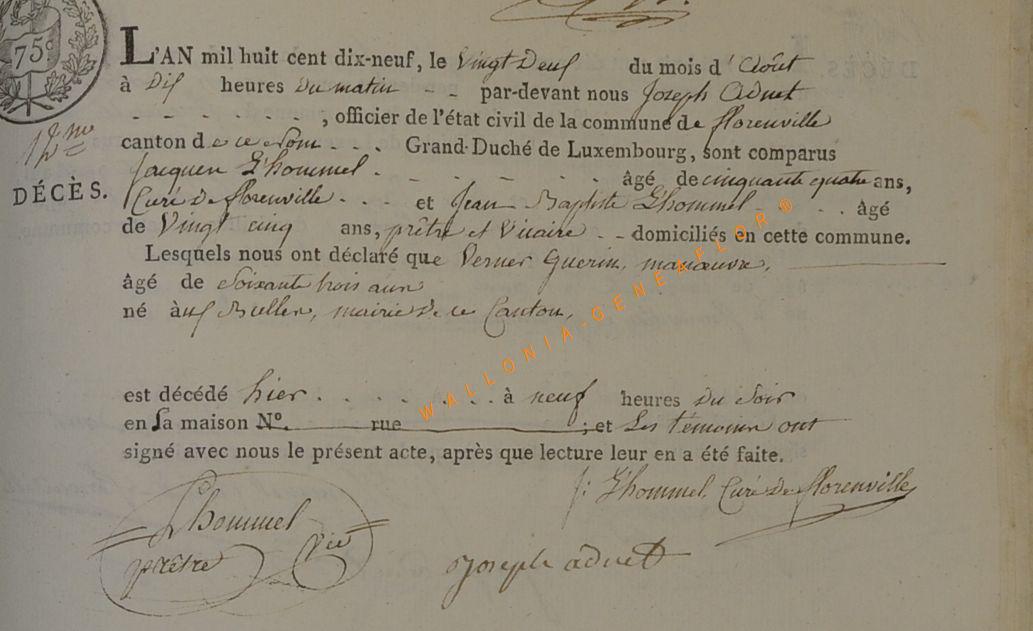 75c
L'AN mil huit cent dix-neuf, le Vingt Deux du mois d'Août
à Dix heures Du matin - - par-devant nous Joseph Adnet
- - - - - - - , officier de l'état civil de la commune de florenville
canton de ce Nom - - - Grand-Duché de Luxembourg, sont comparus
DÉCÈS.
Jacques Lhommel - - - - - - âgé de cinquante quatre ans,
Curé De florenville - - - et Jean Baptiste Lhommel - - - âgé
de Vingt cinq ans, prêtre et Vicaire - - domiciliés en cette commune.
Lesquels nous ont déclaré que Verner Guerin, manœuvre,
âgé de Soixante trois ans
né à Bullen, mairie De ce Canton,
est décédé hier - - - - - - - à neuf heures Du Soir
en sa maison N°. rue ; et Les témoins ont
signé avec nous le présent acte, après que lecture leur en a été faite.
J: Lhommel Curé De florenville
Lhommel
prêtre Vic
Joseph adnet
WALLONIA-GENEAFLOR®